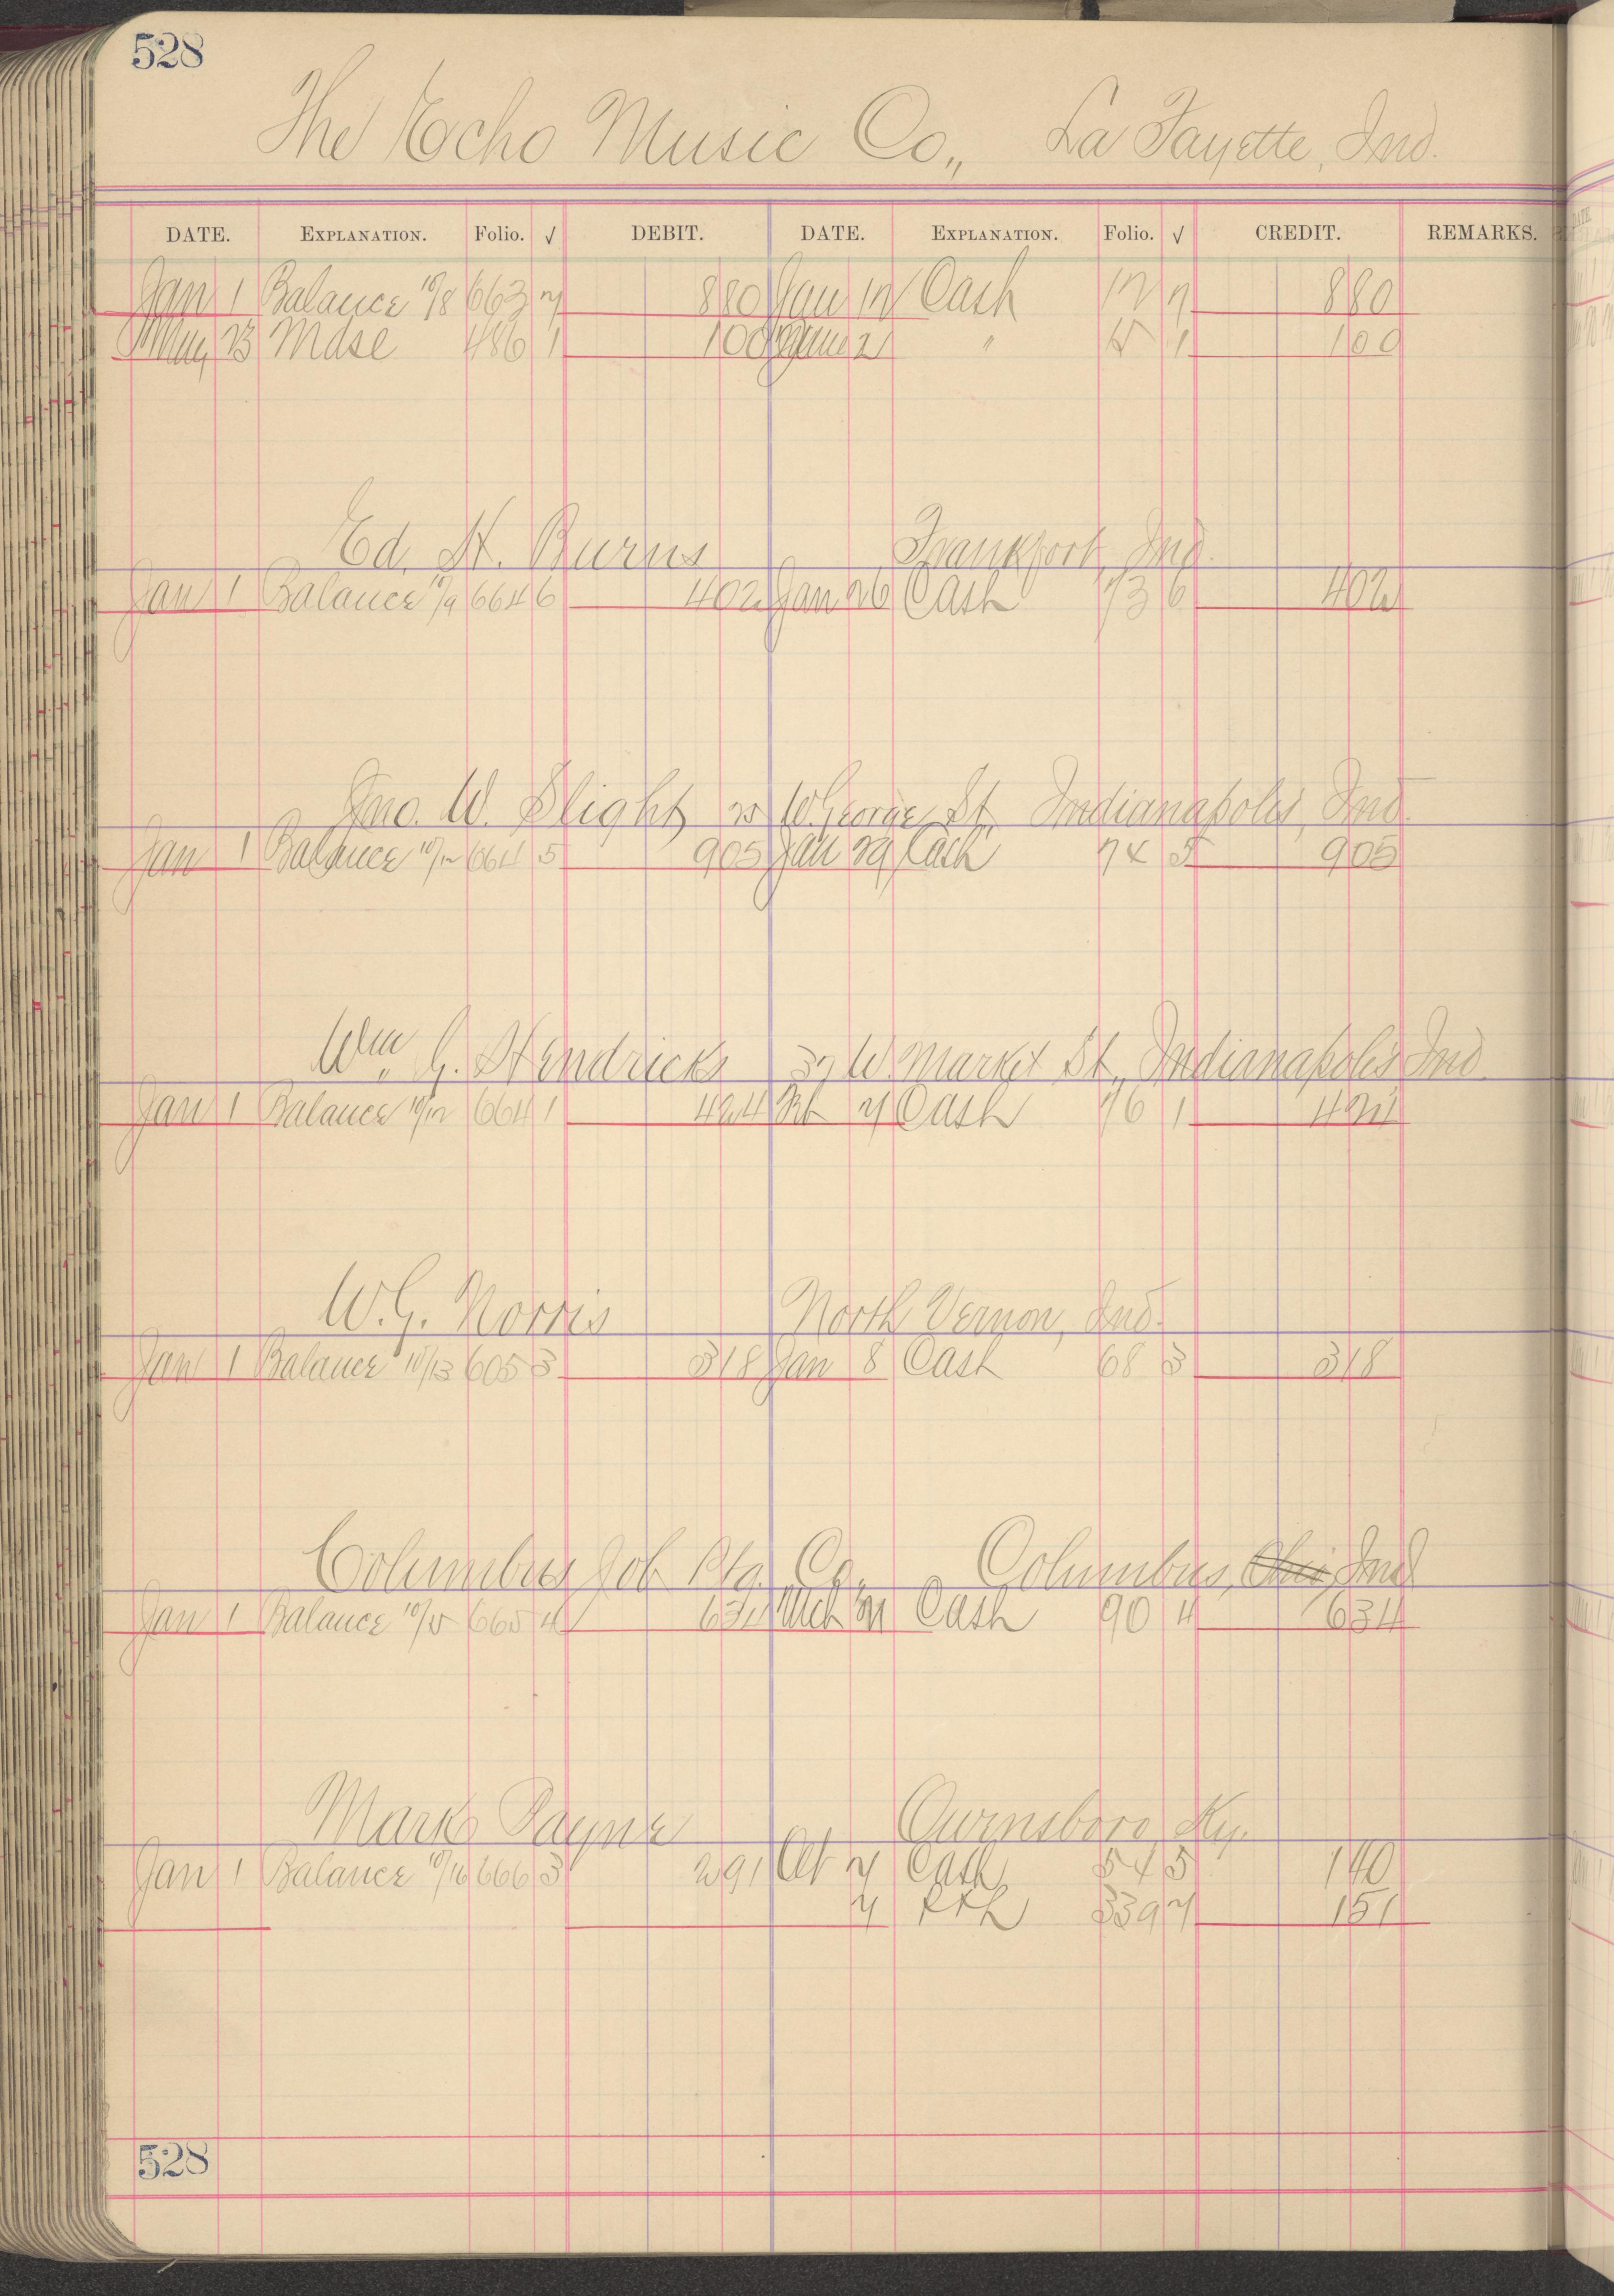 528
The Echo Music Co., La Fayette, Ind.
DATE. EXPLANATION. Folio. √ DEBIT. DATE. EXPLANATION. Folio. √ CREDIT. REMARKS.
Jan 1 Balance 10/8 663 7 880 Jan 12 Cash 880
May 23 Mdse 486 1 100 June 21 " 1 100
Ed. H. Burns Frankfort, Ind.
Jan 1 Balance 10/9 664 6 402 Jan 26 Cash 73 6 402
Jno. W. Slight W. George St, Indianapolis, Ind.
Jan 1 Balance 10/12 664 5 905 Jan 29 Cash 74 5 905
Wm. G. Hendricks 37 W. Market St., Indianapolis Ind.
Jan 1 Balance 10/12 664 1 424 Feb 4 Cash 76 1 424
W. G. Norris North Vernon, Ind.
Jan 1 Balance 10/13 605 3 318 Jan 8 Cash 68 3 318
Columbus Job Ptg. Co. Columbus, Ohio Ind
Jan 1 Balance 10/15 665 4 634 Mch 31 Cash 90 4 634
Mark Payne Owensboro, Ky.
Jan 1 Balance 10/16 666 3 291 Oct 4 Cash 54 5 140
4 339 151
528